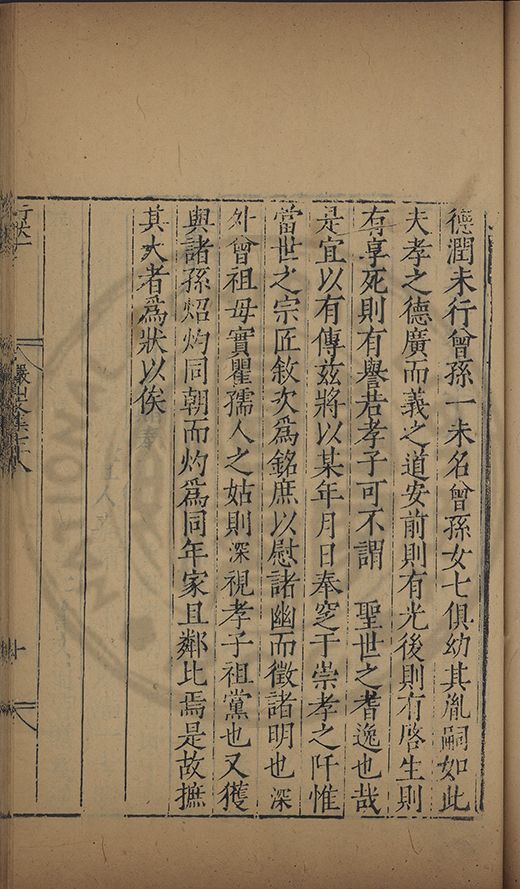 德潤未行曾孫一未名曾孫女七俱幼其胤嗣如此
夫孝之德廣而義之道安前則有光後則有啓生則
有享死則有譽若孝子可不謂　聖世之耆逸也哉
是宜以有傳茲將以某年月日奉窆于崇孝之阡惟
當世之宗匠敘次爲銘庶以慰諸幽而徵諸明也深
外曾祖母實瞿孺人之姑則深視孝子祖黨也又獲
與諸孫炤灼同朝而灼爲同年家且鄰比焉是故摭
其大者爲狀以俟